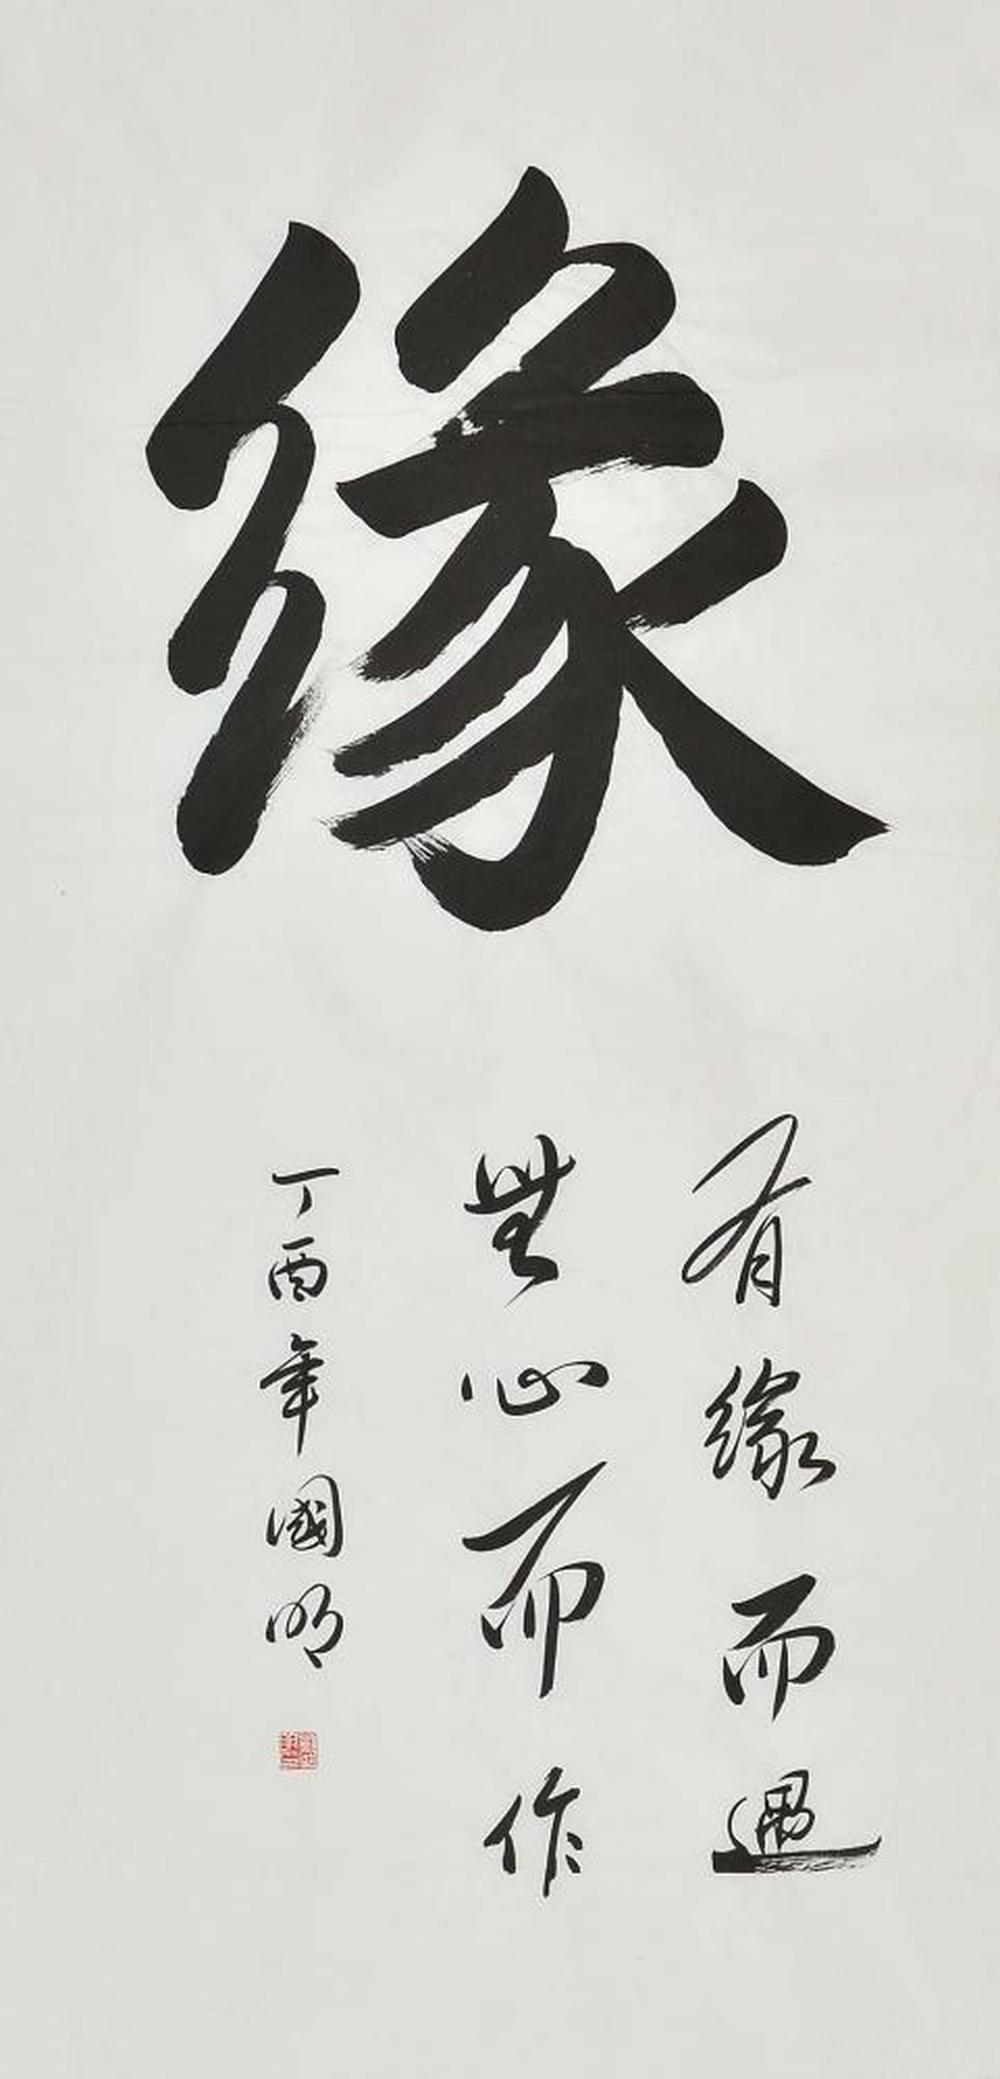 缘
有缘而遇
無心而作
丁酉年國明